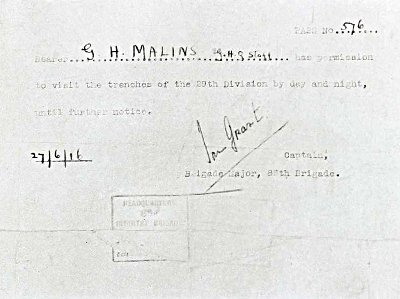 PASS No. 576
Bearer G. H. MALINS G.H.Q Staff has permission
to visit the trenches of the 29th Division by day and night,
until further notice.
27/6/16
Ian Grant
Captain,
Brigade Major, 86th Brigade.
HEADQUARTERS
86TH
INFANTRY BRIGADE